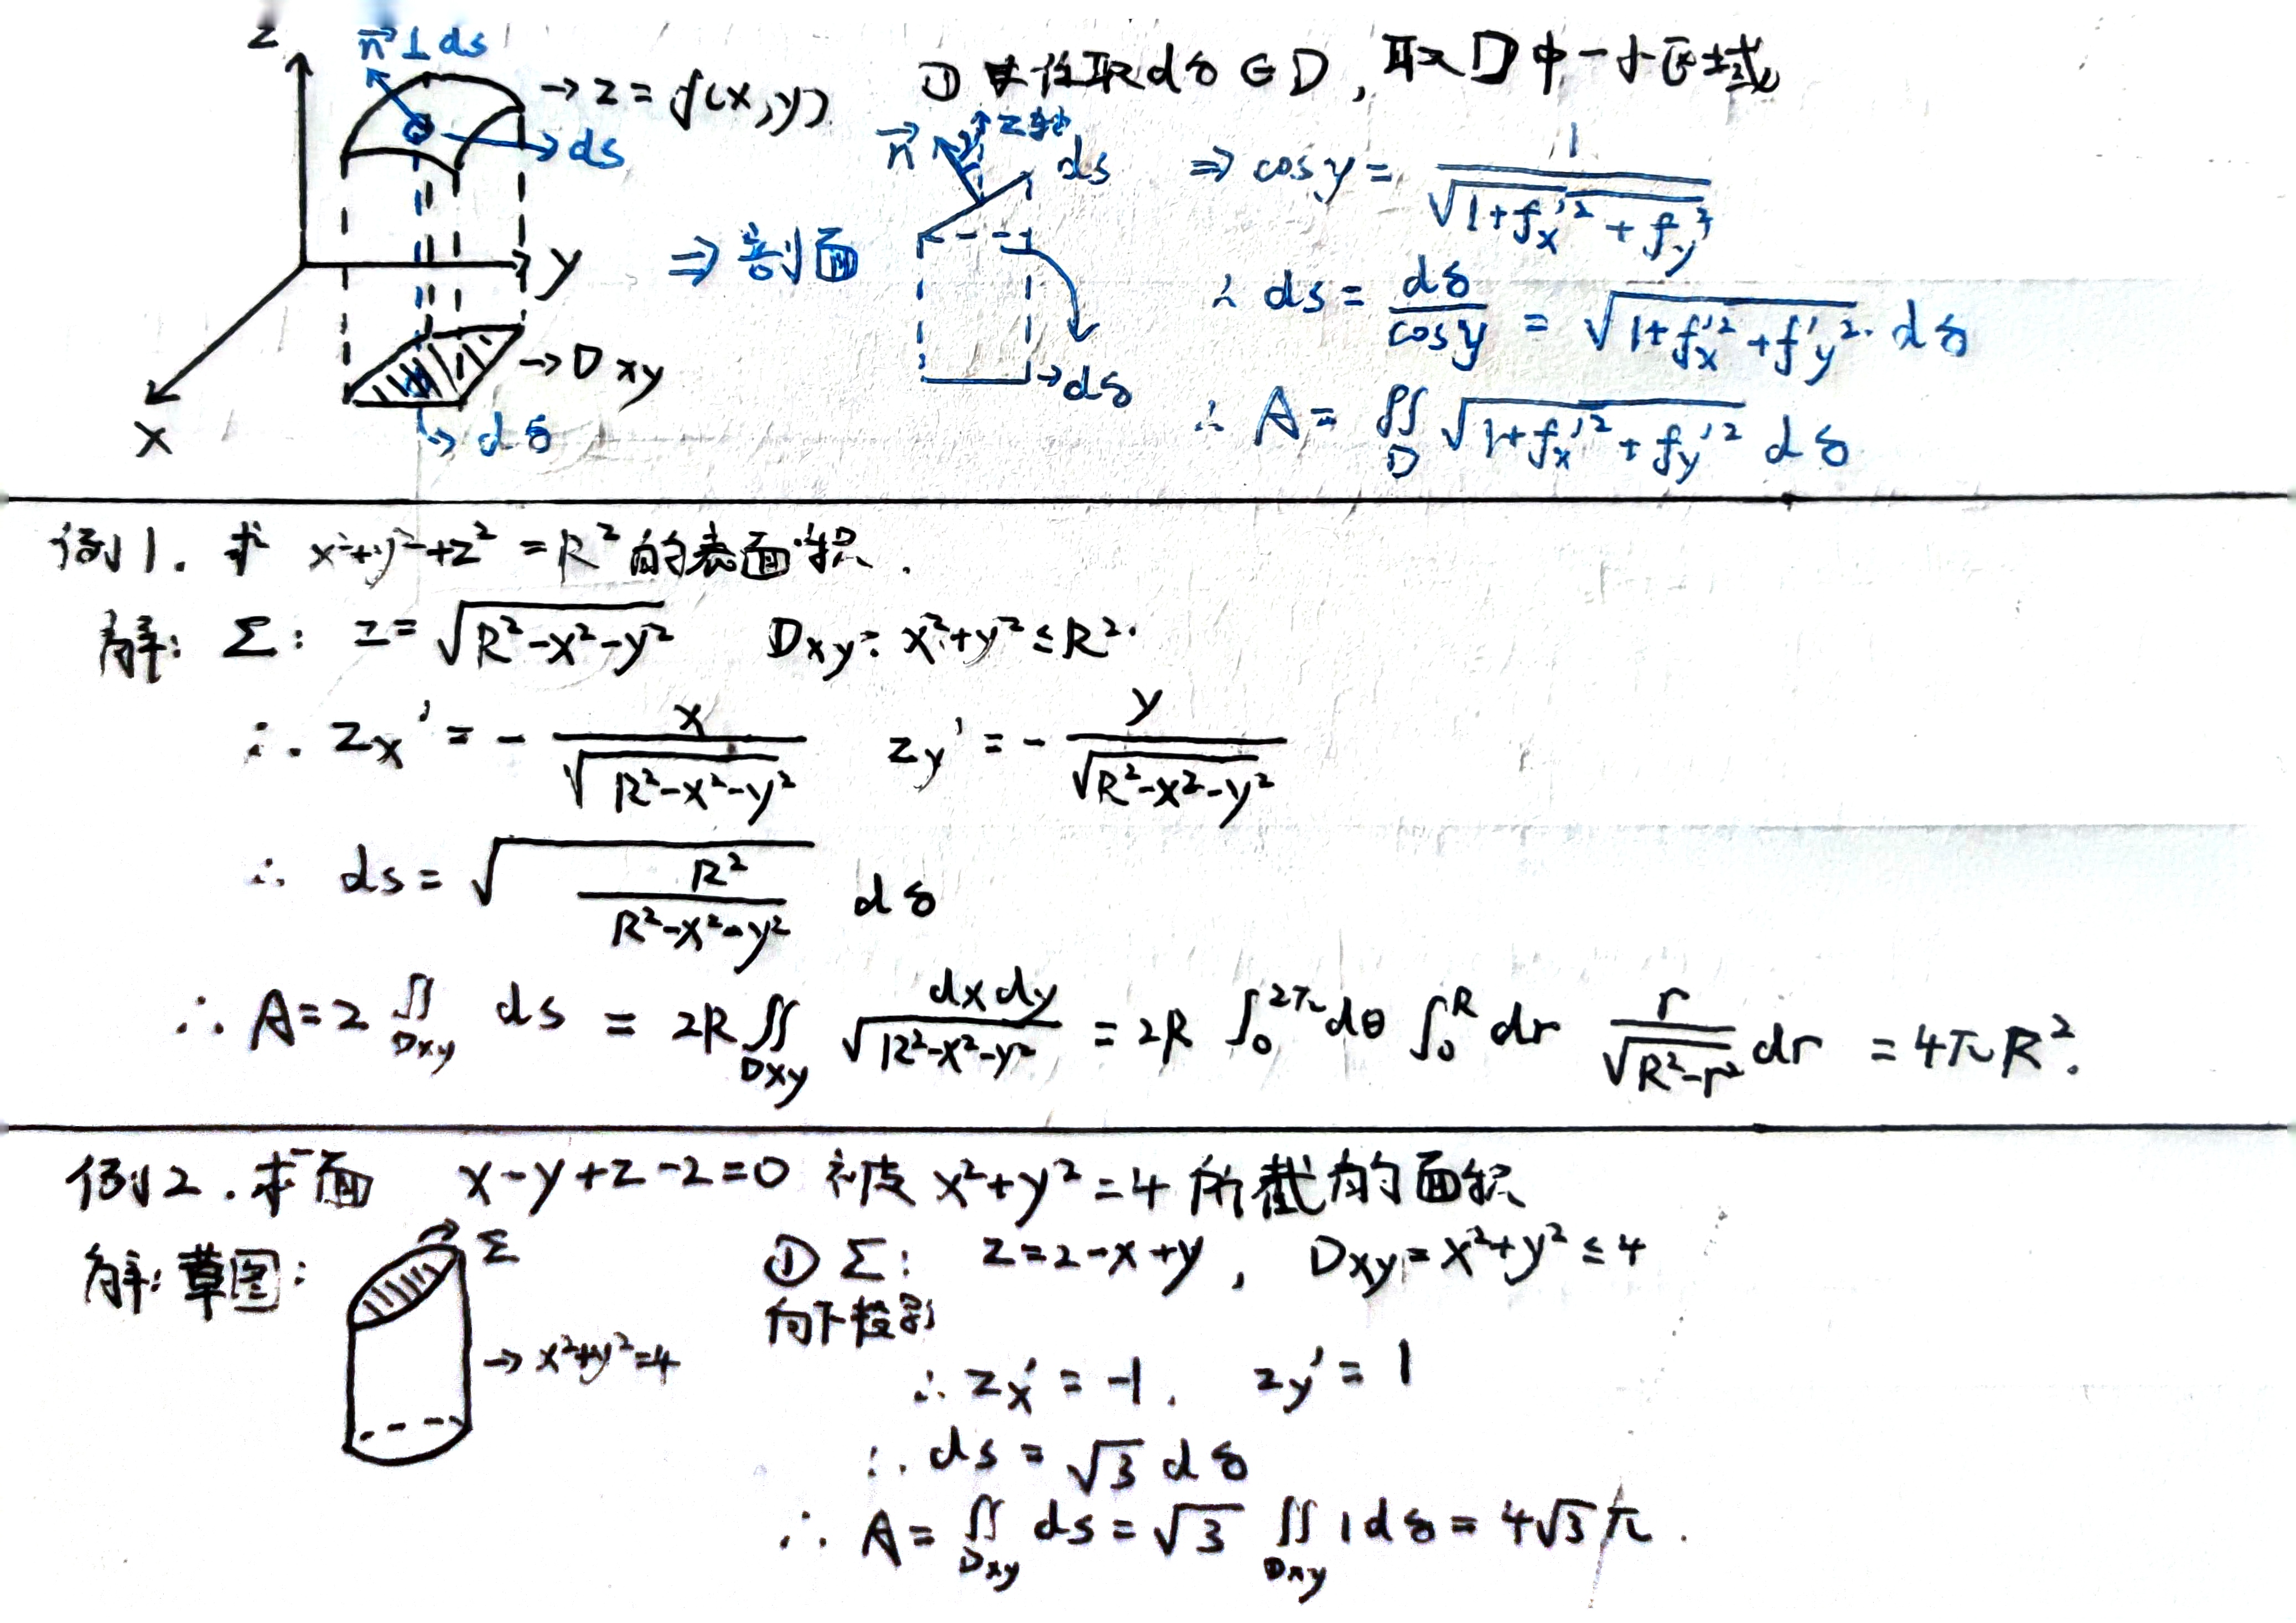 z
n⃗⊥ds
→z=f(x,y)
→ds
→y
x
→Dxy
→dδ
① 任取dδ∈D, 取D中一小区域
⇒剖面
n⃗ z轴 ds
→dδ
⇒ cosγ = 1/√(1+fx'²+fy'²)
∴ ds = dδ/cosγ = √(1+fx'²+f'y²)·dδ
∴ A = ∬_D √(1+fx'²+fy'²) dδ
例1. 求 x²+y²+z²=R²的表面积.
解: Σ: z=√(R²-x²-y²) Dxy: x²+y²≤R².
∴ zx' = - x/√(R²-x²-y²) zy' = - y/√(R²-x²-y²)
∴ ds = √(R²/(R²-x²-y²)) dδ
∴ A=2∬_Dxy ds = 2R∬_Dxy dxdy/√(R²-x²-y²) = 2R ∫₀^2π dθ ∫₀^R dr r/√(R²-r²) dr = 4πR².
例2. 求面 x-y+z-2=0 被 x²+y²=4 所截的面积
解: 草图:
Σ
→x²+y²=4
① Σ: z=2-x+y, Dxy=x²+y²≤4
向下投影
∴ zx' = -1. zy' = 1
∴ ds = √3 dδ
∴ A = ∬_Dxy ds = √3 ∬_Dxy 1dδ = 4√3π.